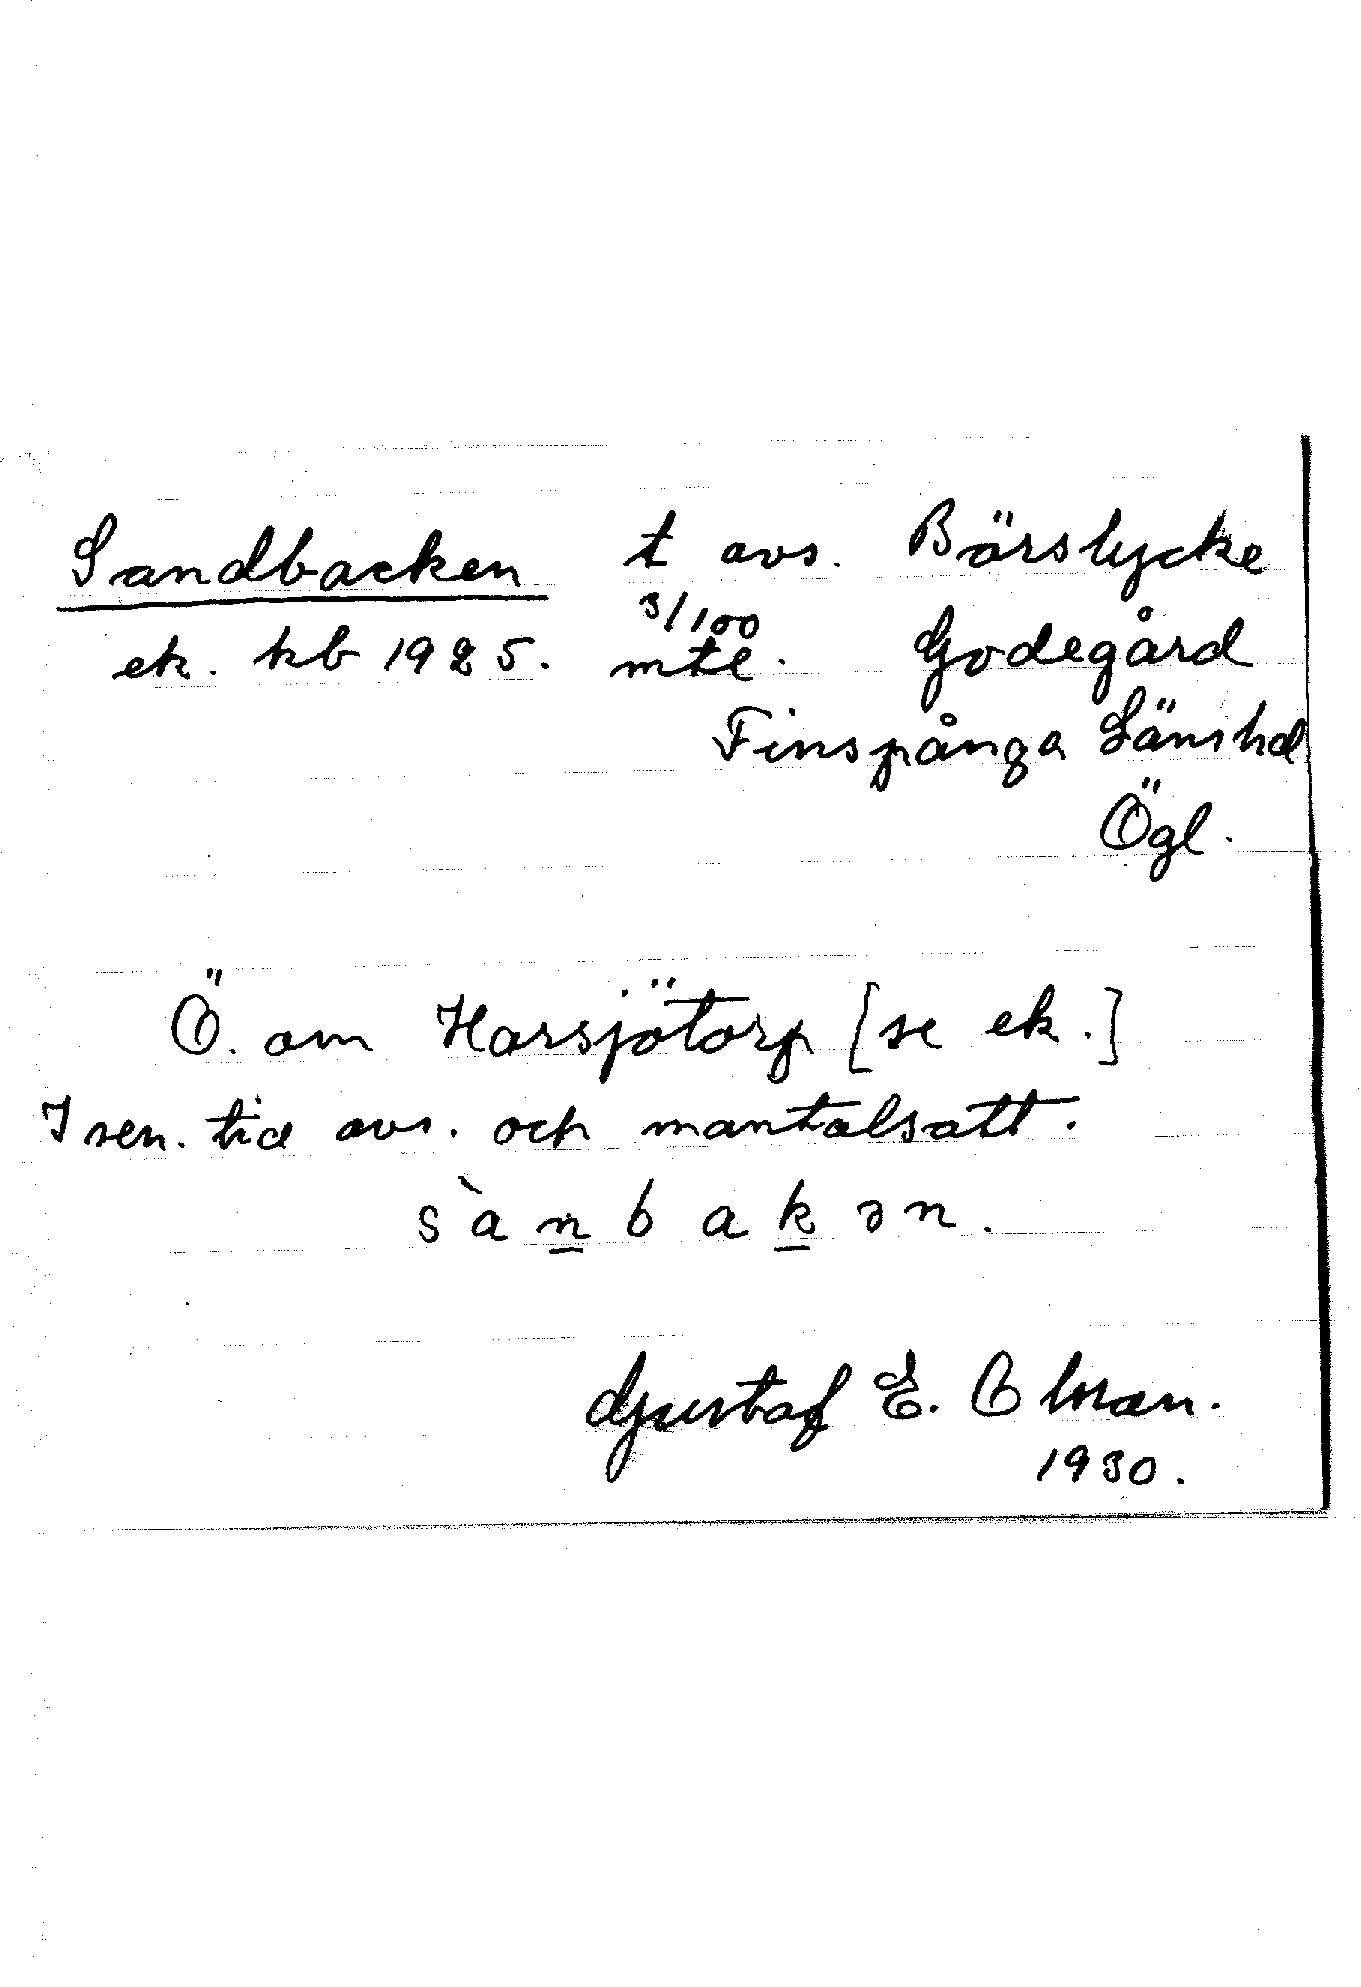 Sandbacken t avs. Börslycke
ek. kb 1925. 3/100 mtl. Godegård
Finspånga Länshd
Ögl.
Ö. om Harsjötorp [se ek.]
I sen. tid avs. och mantalsatt.
sànbakən.
Gustaf E. Olsson.
1930.